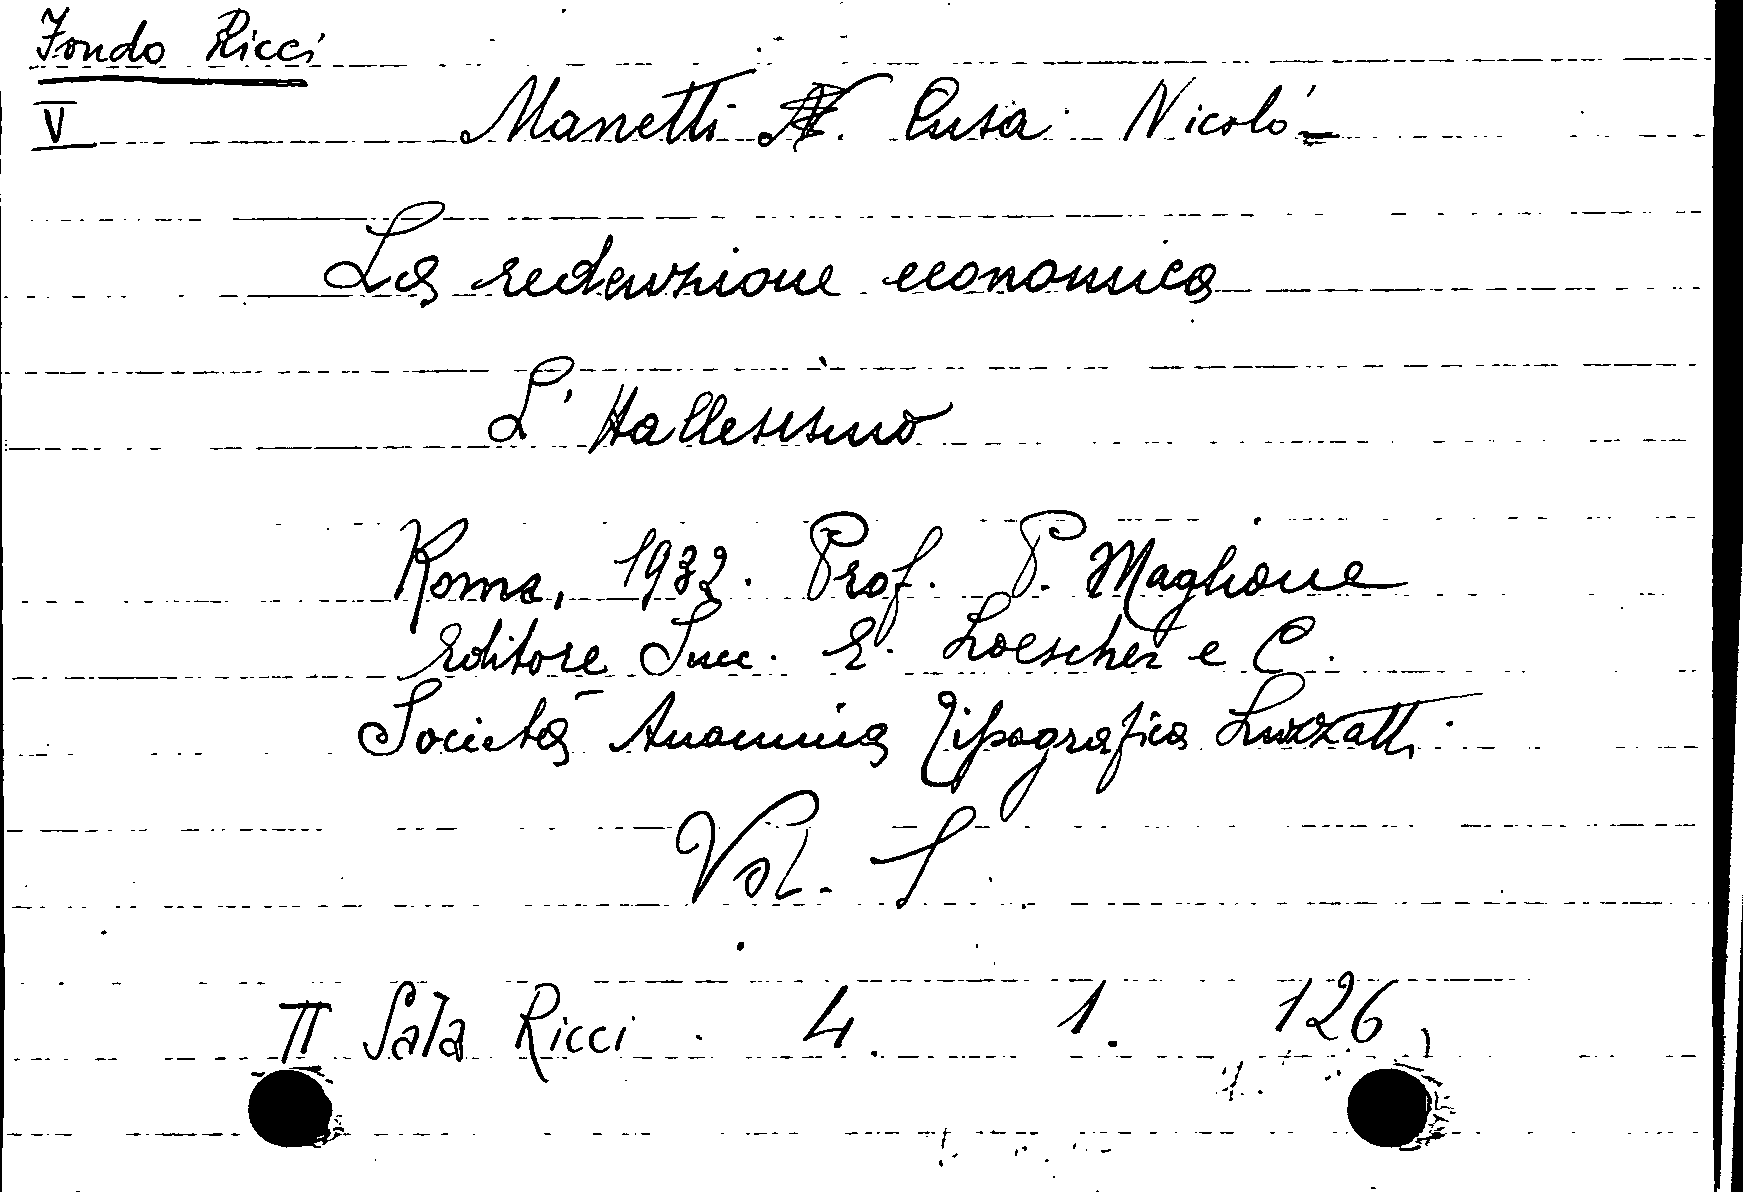 Fondo Ricci
V Manetti N. Cusa Nicolò
La redenzione economica
L'Hallesismo
Roma, 1932. Prof. P. Maglione
Editore Succ. E. Loescher e C.
Società Anonima Tipografica Luzzatti.
Vol. I
II Sala Ricci . 4. 1. 126